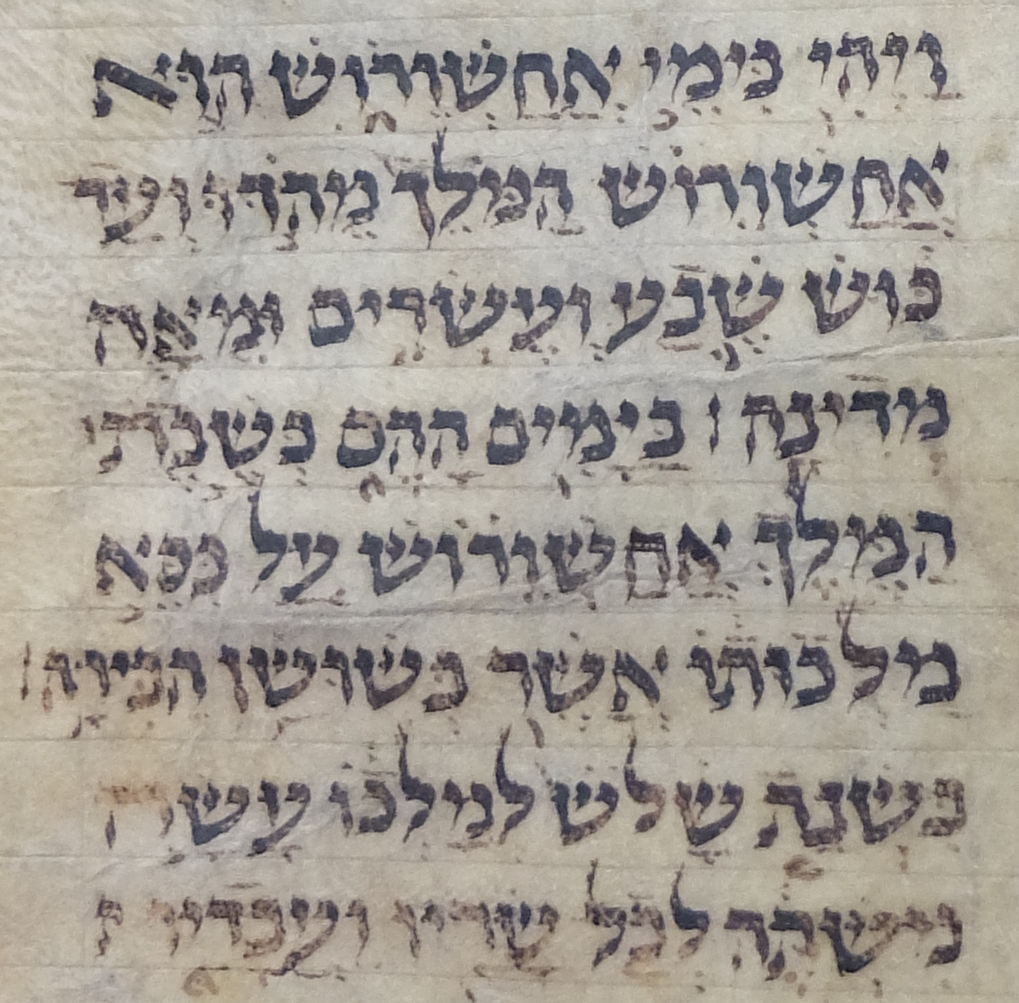 וַיְהִי בִּימֵי אֲחַשְׁוֵרוֹשׁ הוּא
אֲחַשְׁוֵרוֹשׁ הַמֹּלֵךְ מֵהֹדּוּ וְעַד
כּוּשׁ שֶׁבַע וְעֶשְׂרִים וּמֵאָה
מְדִינָה׃ בַּיָּמִים הָהֵם כְּשֶׁבֶת
הַמֶּלֶךְ אֲחַשְׁוֵרוֹשׁ עַל כִּסֵּא
מַלְכוּתוֹ אֲשֶׁר בְּשׁוּשַׁן הַבִּירָה׃
בִּשְׁנַת שָׁלֹשׁ לְמָלְכוֹ עָשָׂה
מִשְׁתֶּה לְכָל שָׂרָיו וַעֲבָדָיו